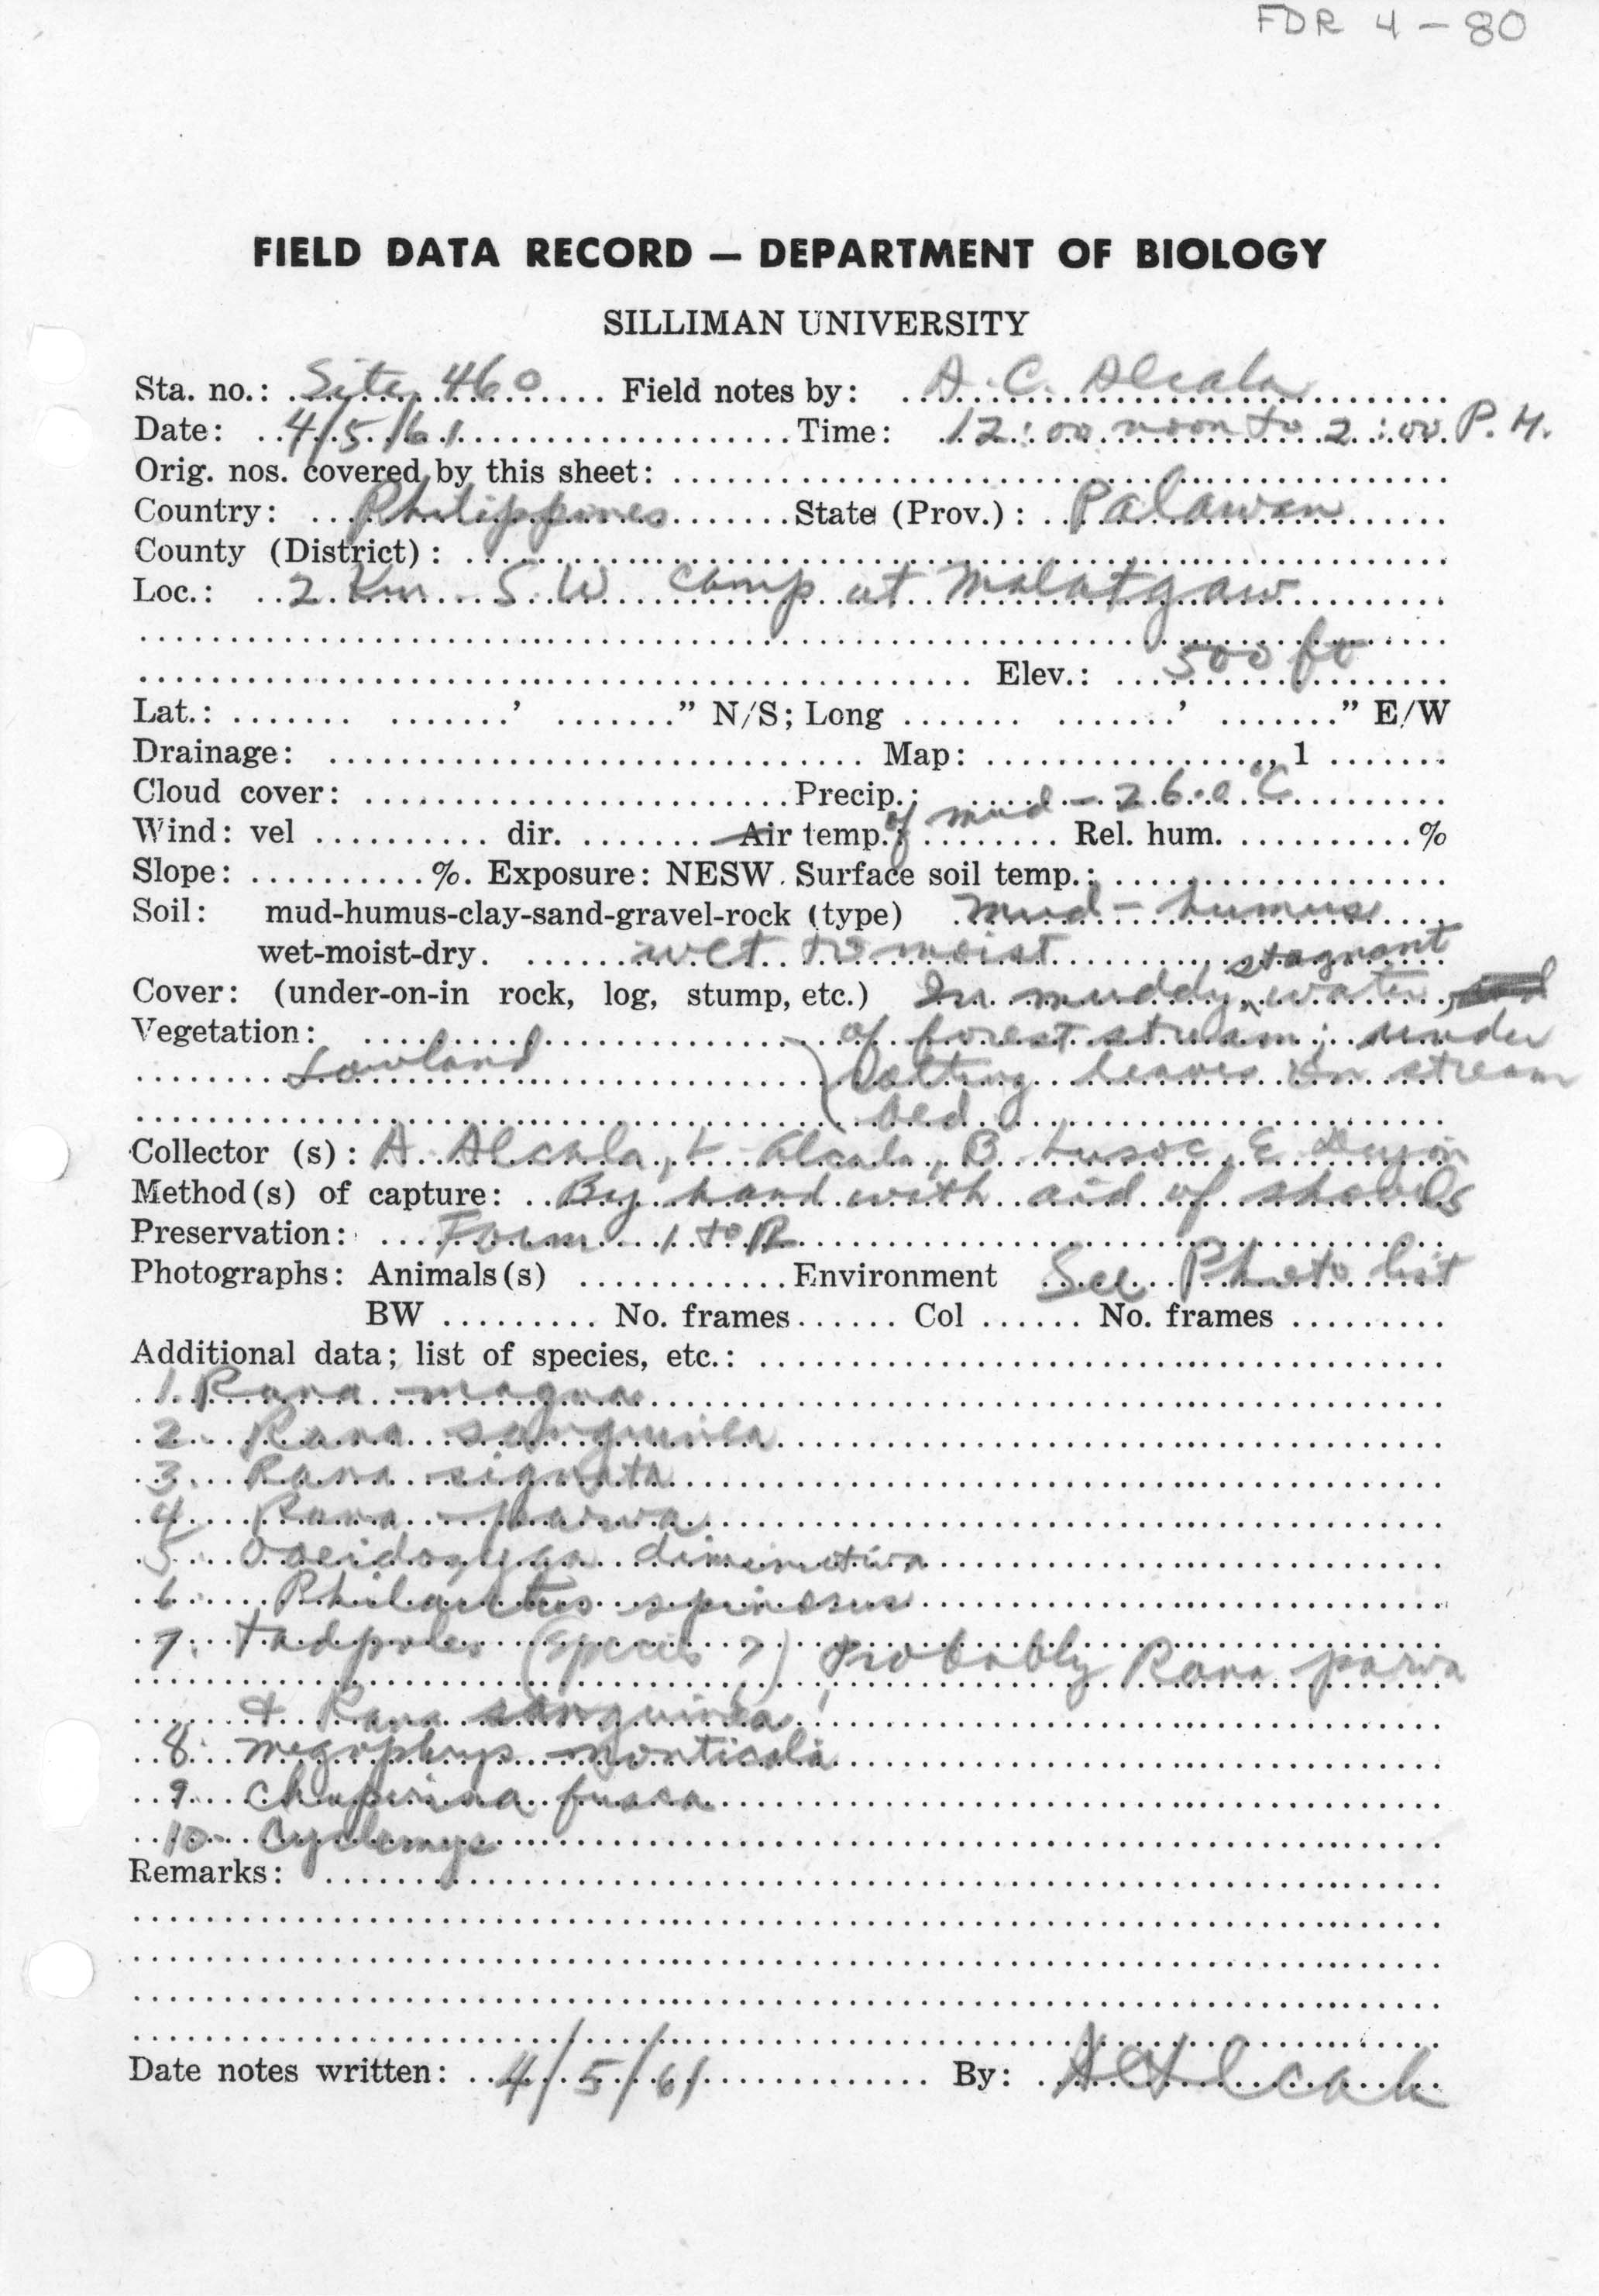 FDR 4-80
FIELD DATA RECORD — DEPARTMENT OF BIOLOGY
SILLIMAN UNIVERSITY
Sta. no.: Site 460 Field notes by: A. C. Alcala
Date: 4/5/61 Time: 12:00 noon to 2:00 P.M.
Orig. nos. covered by this sheet:
Country: Philippines State (Prov.): Palawan
County (District):
Loc.: 2 Km S.W camp at Malatgaw
Elev.: 500 ft
Lat.: ' " N/S; Long ' " E/W
Drainage: Map: , 1
Cloud cover: Precip.:
Wind: vel dir. Air temp. of mud - 26.0°C Rel. hum. %
Slope: %. Exposure: NESW. Surface soil temp.:
Soil: mud-humus-clay-sand-gravel-rock (type) Mud-humus
wet-moist-dry. wet to moist
Cover: (under-on-in rock, log, stump, etc.) In muddy stagnant water,
Vegetation: of forest stream; under
Lowland leaves in stream
bed
Collector (s): A. Alcala, L. Alcala, B. Lusoc, E
Method(s) of capture: By hand with aid of shovels
Preservation: Form 1 to
Photographs: Animals(s) Environment See Photo list
BW No. frames Col No. frames
Additional data; list of species, etc.:
1. Rana magna
2. Rana sanguinea
3. Rana signata
4 Rana parva
5. Ooeidozyga diminutiva
6. Philautus spinosus
7. tadpoles (species ?) Probably Rana parva
& Rana sanguinea
8. Megophrys monticola
9. Chaperina fusca
10. Cyclemys
Remarks:
Date notes written: 4/5/61 By: A C Alcala